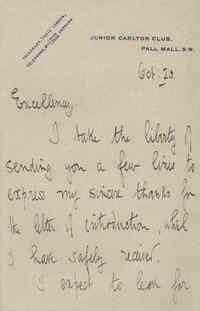 JUNIOR CARLTON CLUB,
PALL MALL, S.W.
Oct. 23
Excellency
I take the liberty of
sending you a few lines to
express my sincere thanks for
the letter of introduction, which
I have safely received.
I expect to leave for